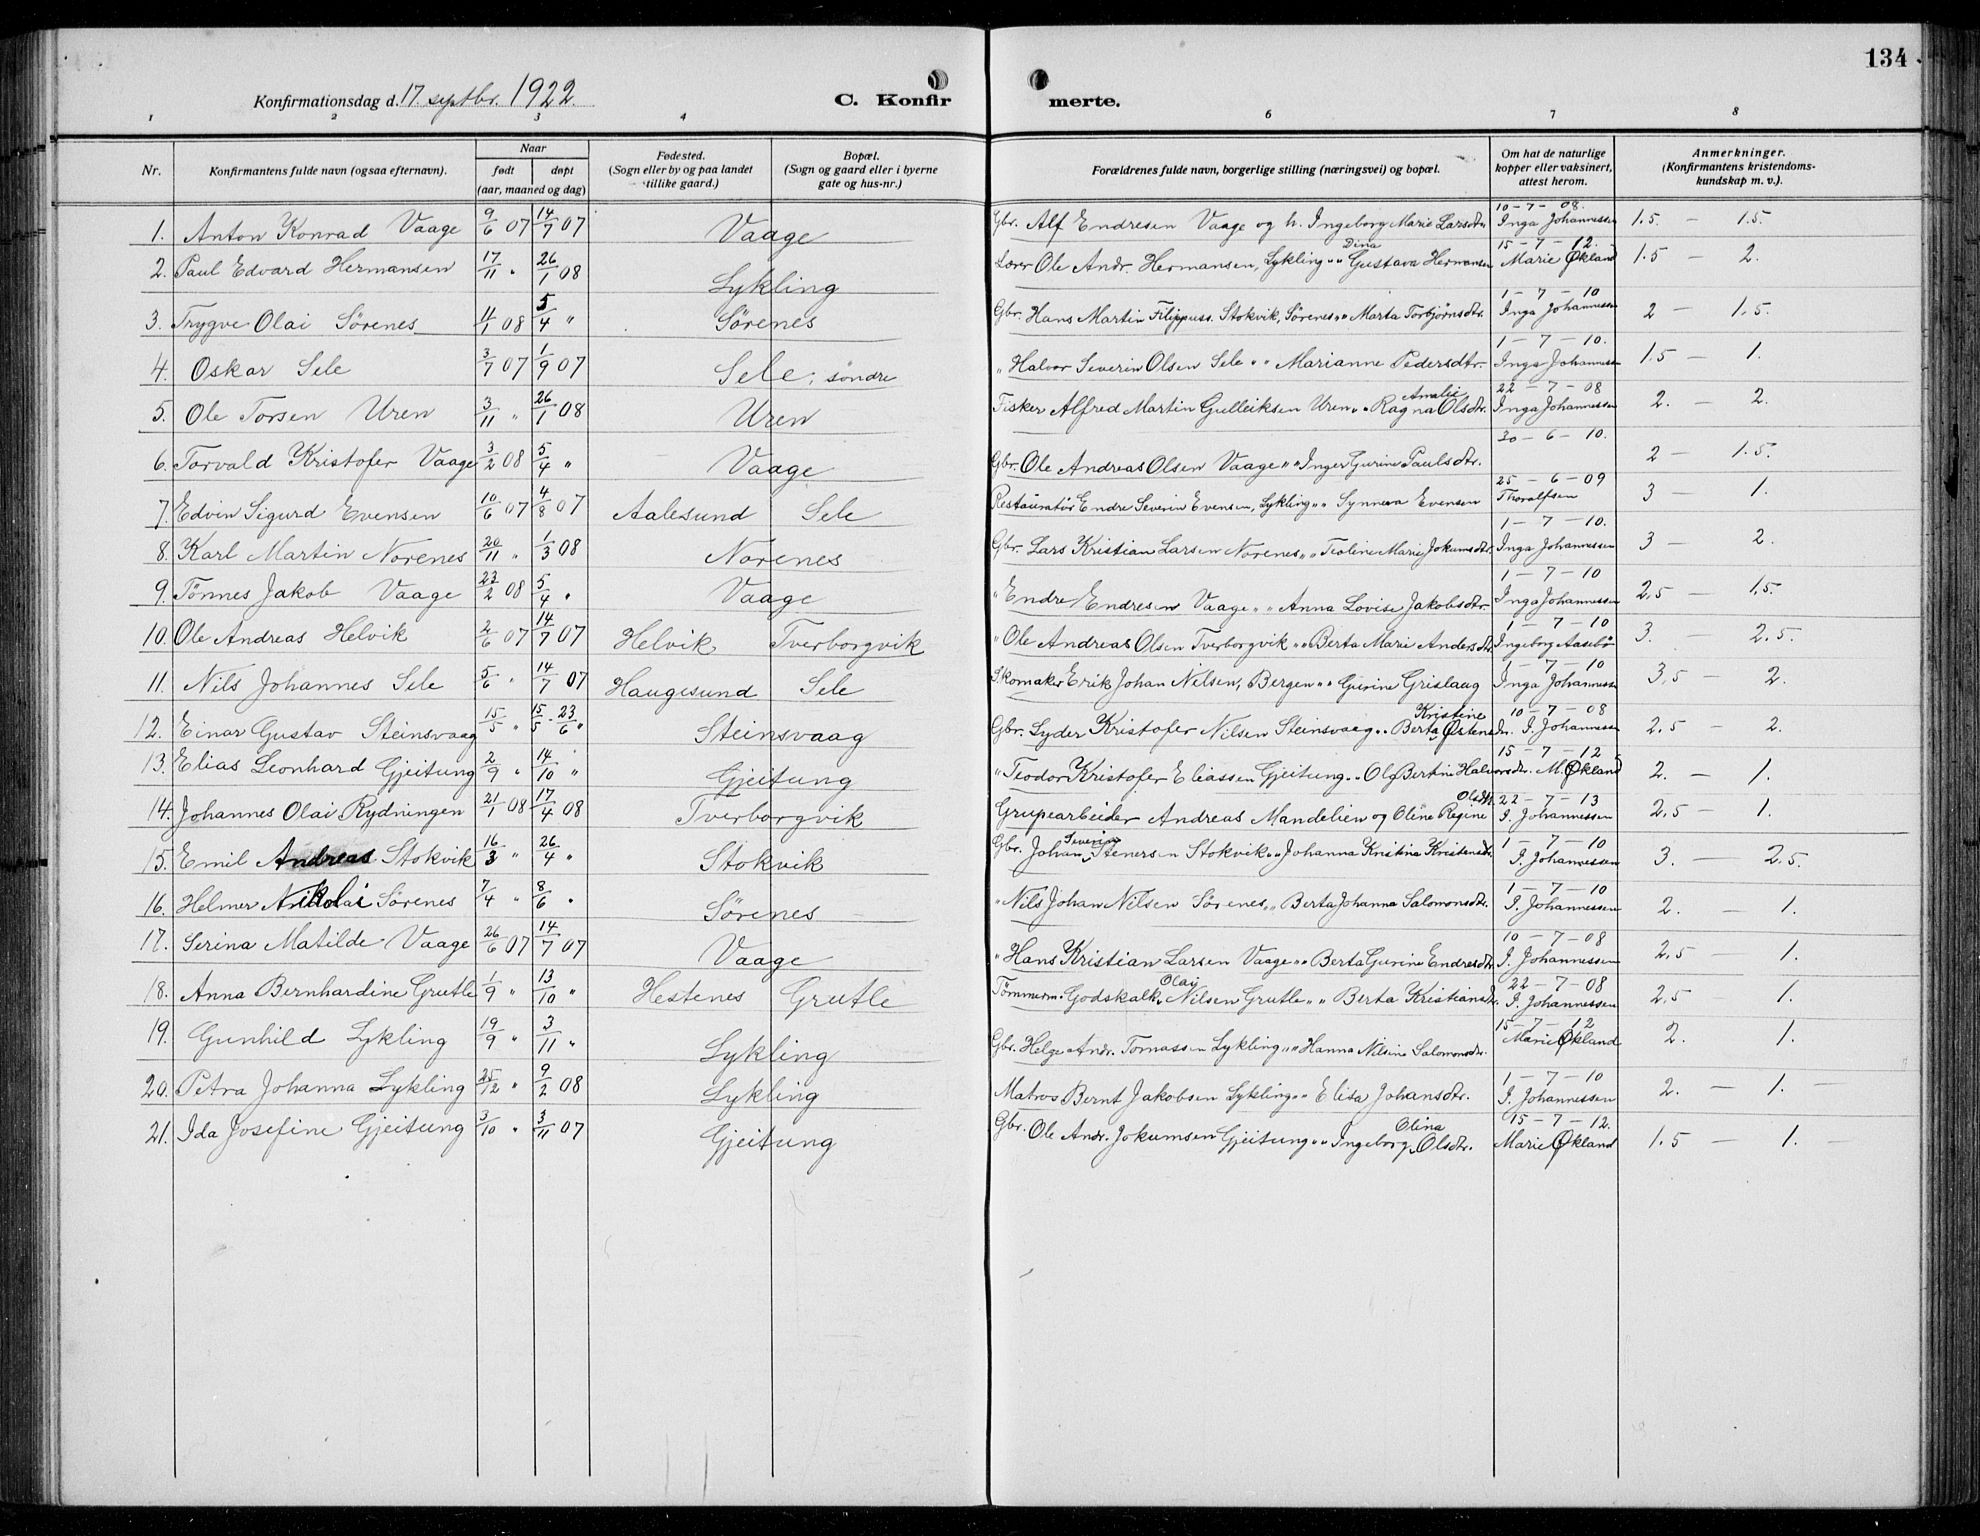 134
Konfirmationsdag d. 17. septbr. 1922. C. Konfir merte.
1 2 3 4 6 7 8
Nr. Konfirmantens fulde navn (ogsaa efternavn). Naar født døpt (aar, maaned og dag) Fødested. (Sogn eller by og paa landet tillike gaard.) Bopæl. (Sogn og gaard eller i byerne gate og hus-nr.) Forældrenes fulde navn, borgerlige stilling (næringsvei) og bopæl. Om hat de naturlige kopper eller vaksinert, attest herom. Anmerkninger. (Konfirmantens kristendomskundskap m. v.).
1. Anton Konrad Vaage 9/6 07 14/7 07 Vaage Gbr. Alf Endresen Vaage og h. Ingeborg Marie Larsdtr. 10-7-08. Inga Johannessen 1.5 — 1.5.
2. Paul Edvard Hermansen 17/11 " 26/1 08 Lykling Lærer Ole Andr. Hermansen, Lykling " " Dina Gustava Hermansen 15-7-12. Marie Økland 1.5 — 2.
3. Trygve Olai Sörenes 11/1 08 5/4 " Sörenes Gbr. Hans Martin Filippuss. Stokvik, Sörenes " " Marta Torbjørnsdtr. 1-7-10 Inga Johannessen 2 — 1.5.
4. Oskar Sele 3/7 07 1/9 07 Sele, söndre " Halvor Severin Olsen Sele " " Marianne Pedersdtr. 1-7-10. Inga Johannessen 1.5 — 1.
5. Ole Torsen Uren 3/11 " 26/1 08 Uren Fisker Alfred Martin Gulleiksen Uren " " Ragna Amalie Olsdtr. 22-7-08 Inga Johannessen 2. — 2.
6. Torvald Kristofer Vaage 3/2 08 5/4 " Vaage Gbr. Ole Andreas Olsen Vaage " " Inger Gurine Paulsdtr. 30-6-10. 2 — 1.5.
7. Edvin Sigurd Evensen 10/6 07 4/8 07 Aalesund Sele Restauratör Endre Severin Evensen, Lykling " " Synneva Evensen 25-6-09 Thoralfsen 3 — 1.
8. Karl Martin Norenes 20/11 " 1/3 08 Norenes Gbr. Lars Kristian Larsen Norenes " " Teoline Marie Jokumsdtr. 1-7-10. Inga Johannessen 3 — 2.
9. Tönnes Jakob Vaage 23/2 08 5/4 " Vaage " Endre Endresen Vaage " " Anna Lovise Jakobsdtr. 1-7-10 Inga Johannessen 2.5 — 1.5.
10. Ole Andreas Helvik 2/6 07 14/7 07 Helvik Tverborgvik " Ole Andreas Olsen Tverborgvik " " Berta Marie Andersdtr. 1-7-10 Ingeborg Aasebö 3. — 2.5.
11. Nils Johannes Sele 5/6 " 14/7 07 Haugesund Sele Skomaker Erik Johan Nilsen, Bergen " " Gurine Grislaug 1-7-10 Inga Johannessen 3.5 — 2.
12. Einar Gustav Steinsvaag 15/5 " 15/5 - 23/6 " Steinsvaag Gbr. Lyder Kristofer Nilsen Steinsvaag " " Berta Kristine Østensdtr. 10-7-08 I. Johannessen 2.5 — 2.
13. Elias Leonhard Gjeitung 2/9 " 14/10 " Gjeitung " Teodor Kristofer Eliassen Gjeitung " Olg Bertine Halvorsdtr. 15-7-12 M. Økland 2. — 1.
14. Johannes Olai Rydningen 21/1 08 17/4 08 Tverborgvik Grupearbeider Andreas Mandelien og Oline Regine Olsdtr. 22-7-13 I. Johannessen 2.5 — 1.
15. Emil Andreas Stokvik 16/3 " 26/4 " Stokvik Gbr. Johan Severin Stenersen Stokvik " " Johanna Kristina Kristensdtr. 1-7-10 I. Johannessen 3. — 2.5.
16. Helmer Nikolai Sörenes 7/4 " 8/6 " Sörenes " Nils Johan Nilsen Sörenes " " Berta Johanna Salomonsdtr. 1-7-10 I. Johannessen 2. — 1.
17. Serina Matilde Vaage 26/6 07 14/7 07 Vaage " Hans Kristian Larsen Vaage " " Berta Gurine Endresdtr. 10-7-08 I. Johannessen 2.5 — 1.
18. Anna Bernhardine Grutle 1/9 " 13/10 " Hestenes Grutle Tömmerm. Godskalk Olai Nilsen Grutle " " Berta Kristiansdtr. 22-7-08 I. Johannessen 2.5 1.
19. Gunhild Lykling 19/9 " 3/11 " Lykling Gbr. Helge Andr. Tomassen Lykling " " Hanna Nilsine Salomonsdtr. 15-7-12 Marie Økland 2. 1.
20. Petra Johanna Lykling 25/12 " 9/2 08 Lykling Matros Bernt Jakobsen Lykling " " Elisa Johansdtr. 1-7-10 I. Johannessen 2. — 1. —
21. Ida Josefine Gjeitung 3/10 " 3/11 07 Gjeitung Gbr. Ole Andr. Jokumsen Gjeitung " " Ingeborg Olina Olsdtr. 15-7-12. Marie Økland 1.5 — 1. —